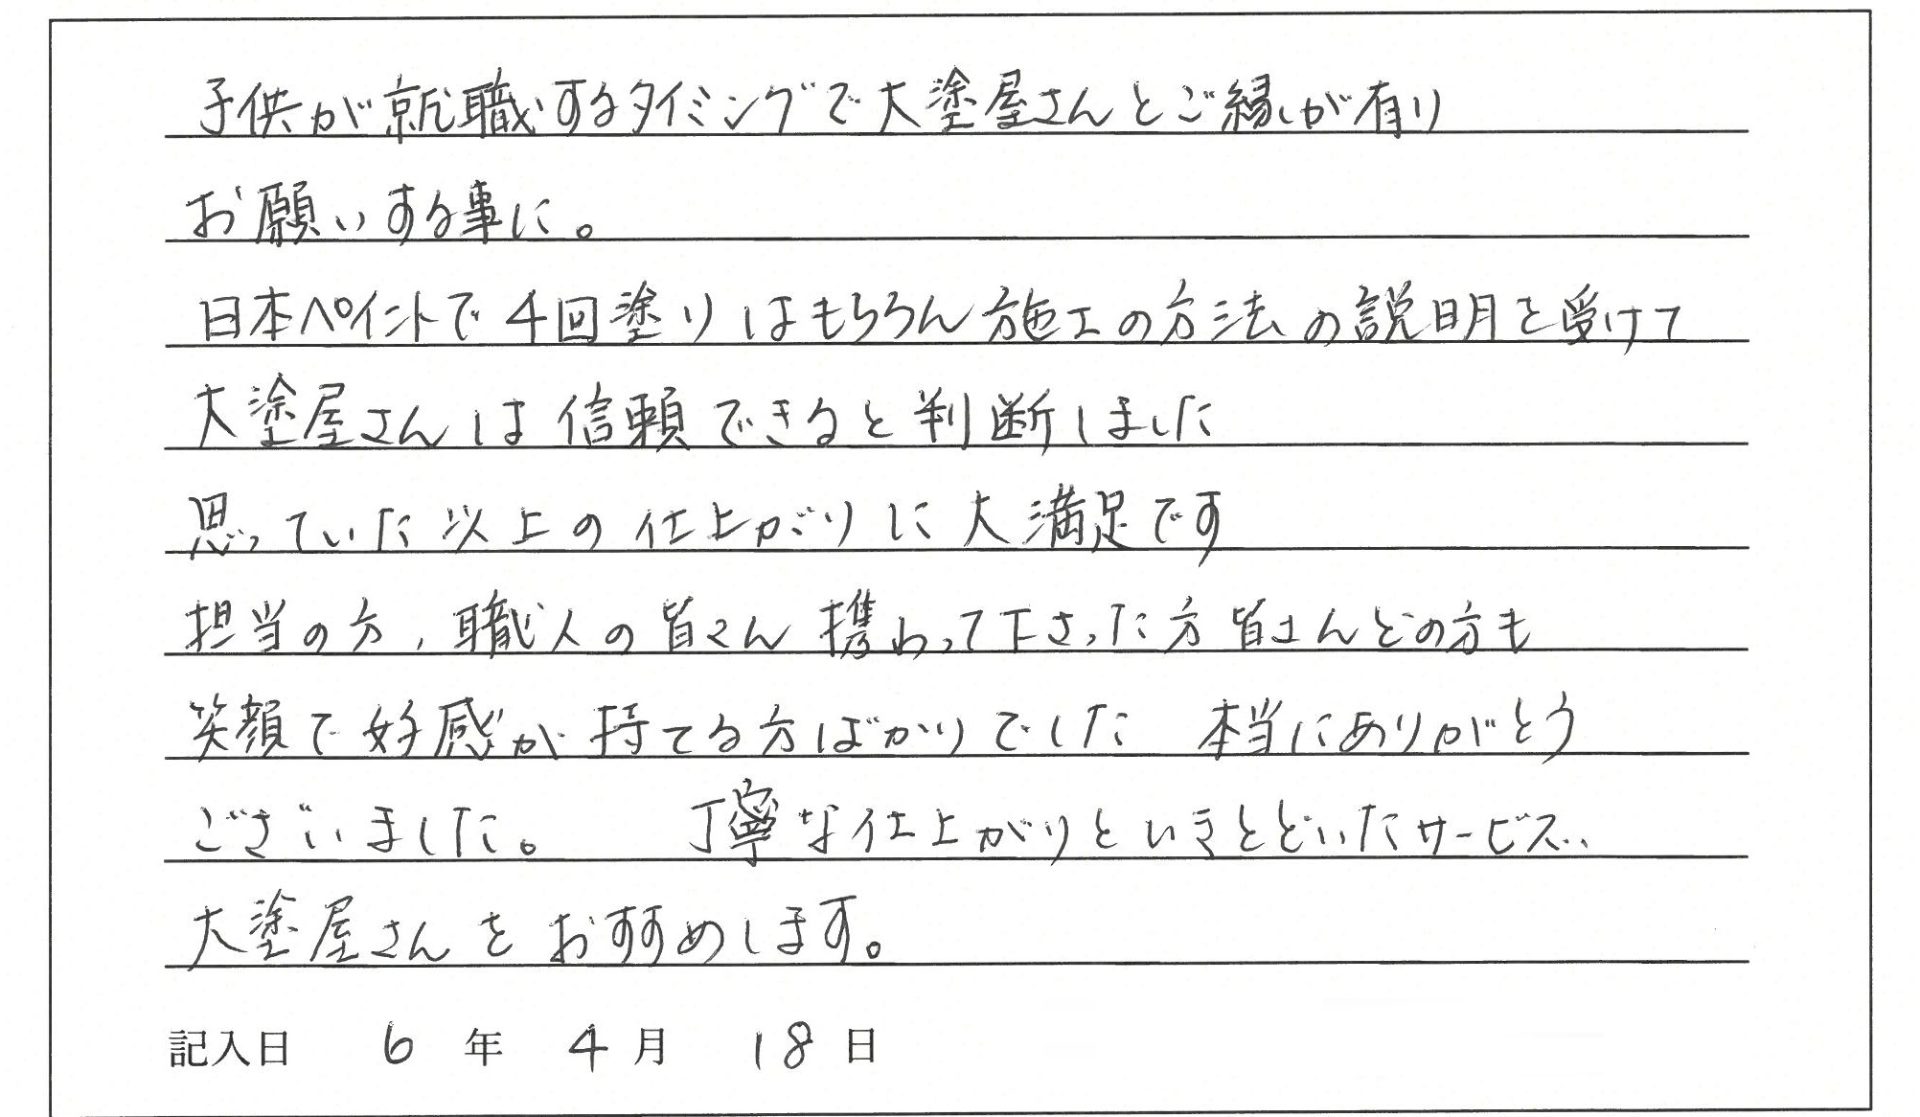 子供が就職するタイミングで大塗屋さんとご縁が有り
お願いする事に。
日本ペイントで4回塗りはもちろん施工の方法の説明を受けて
大塗屋さんは信頼できると判断しました
思っていた以上の仕上がりに大満足です
担当の方、職人の皆さん携わって下さった方皆さんどの方も
笑顔で好感が持てる方ばかりでした 本当にありがとう
ございました。 丁寧な仕上がりといきとどいたサービス..
大塗屋さんをおすすめします。
記入日 6 年 4 月 18 日